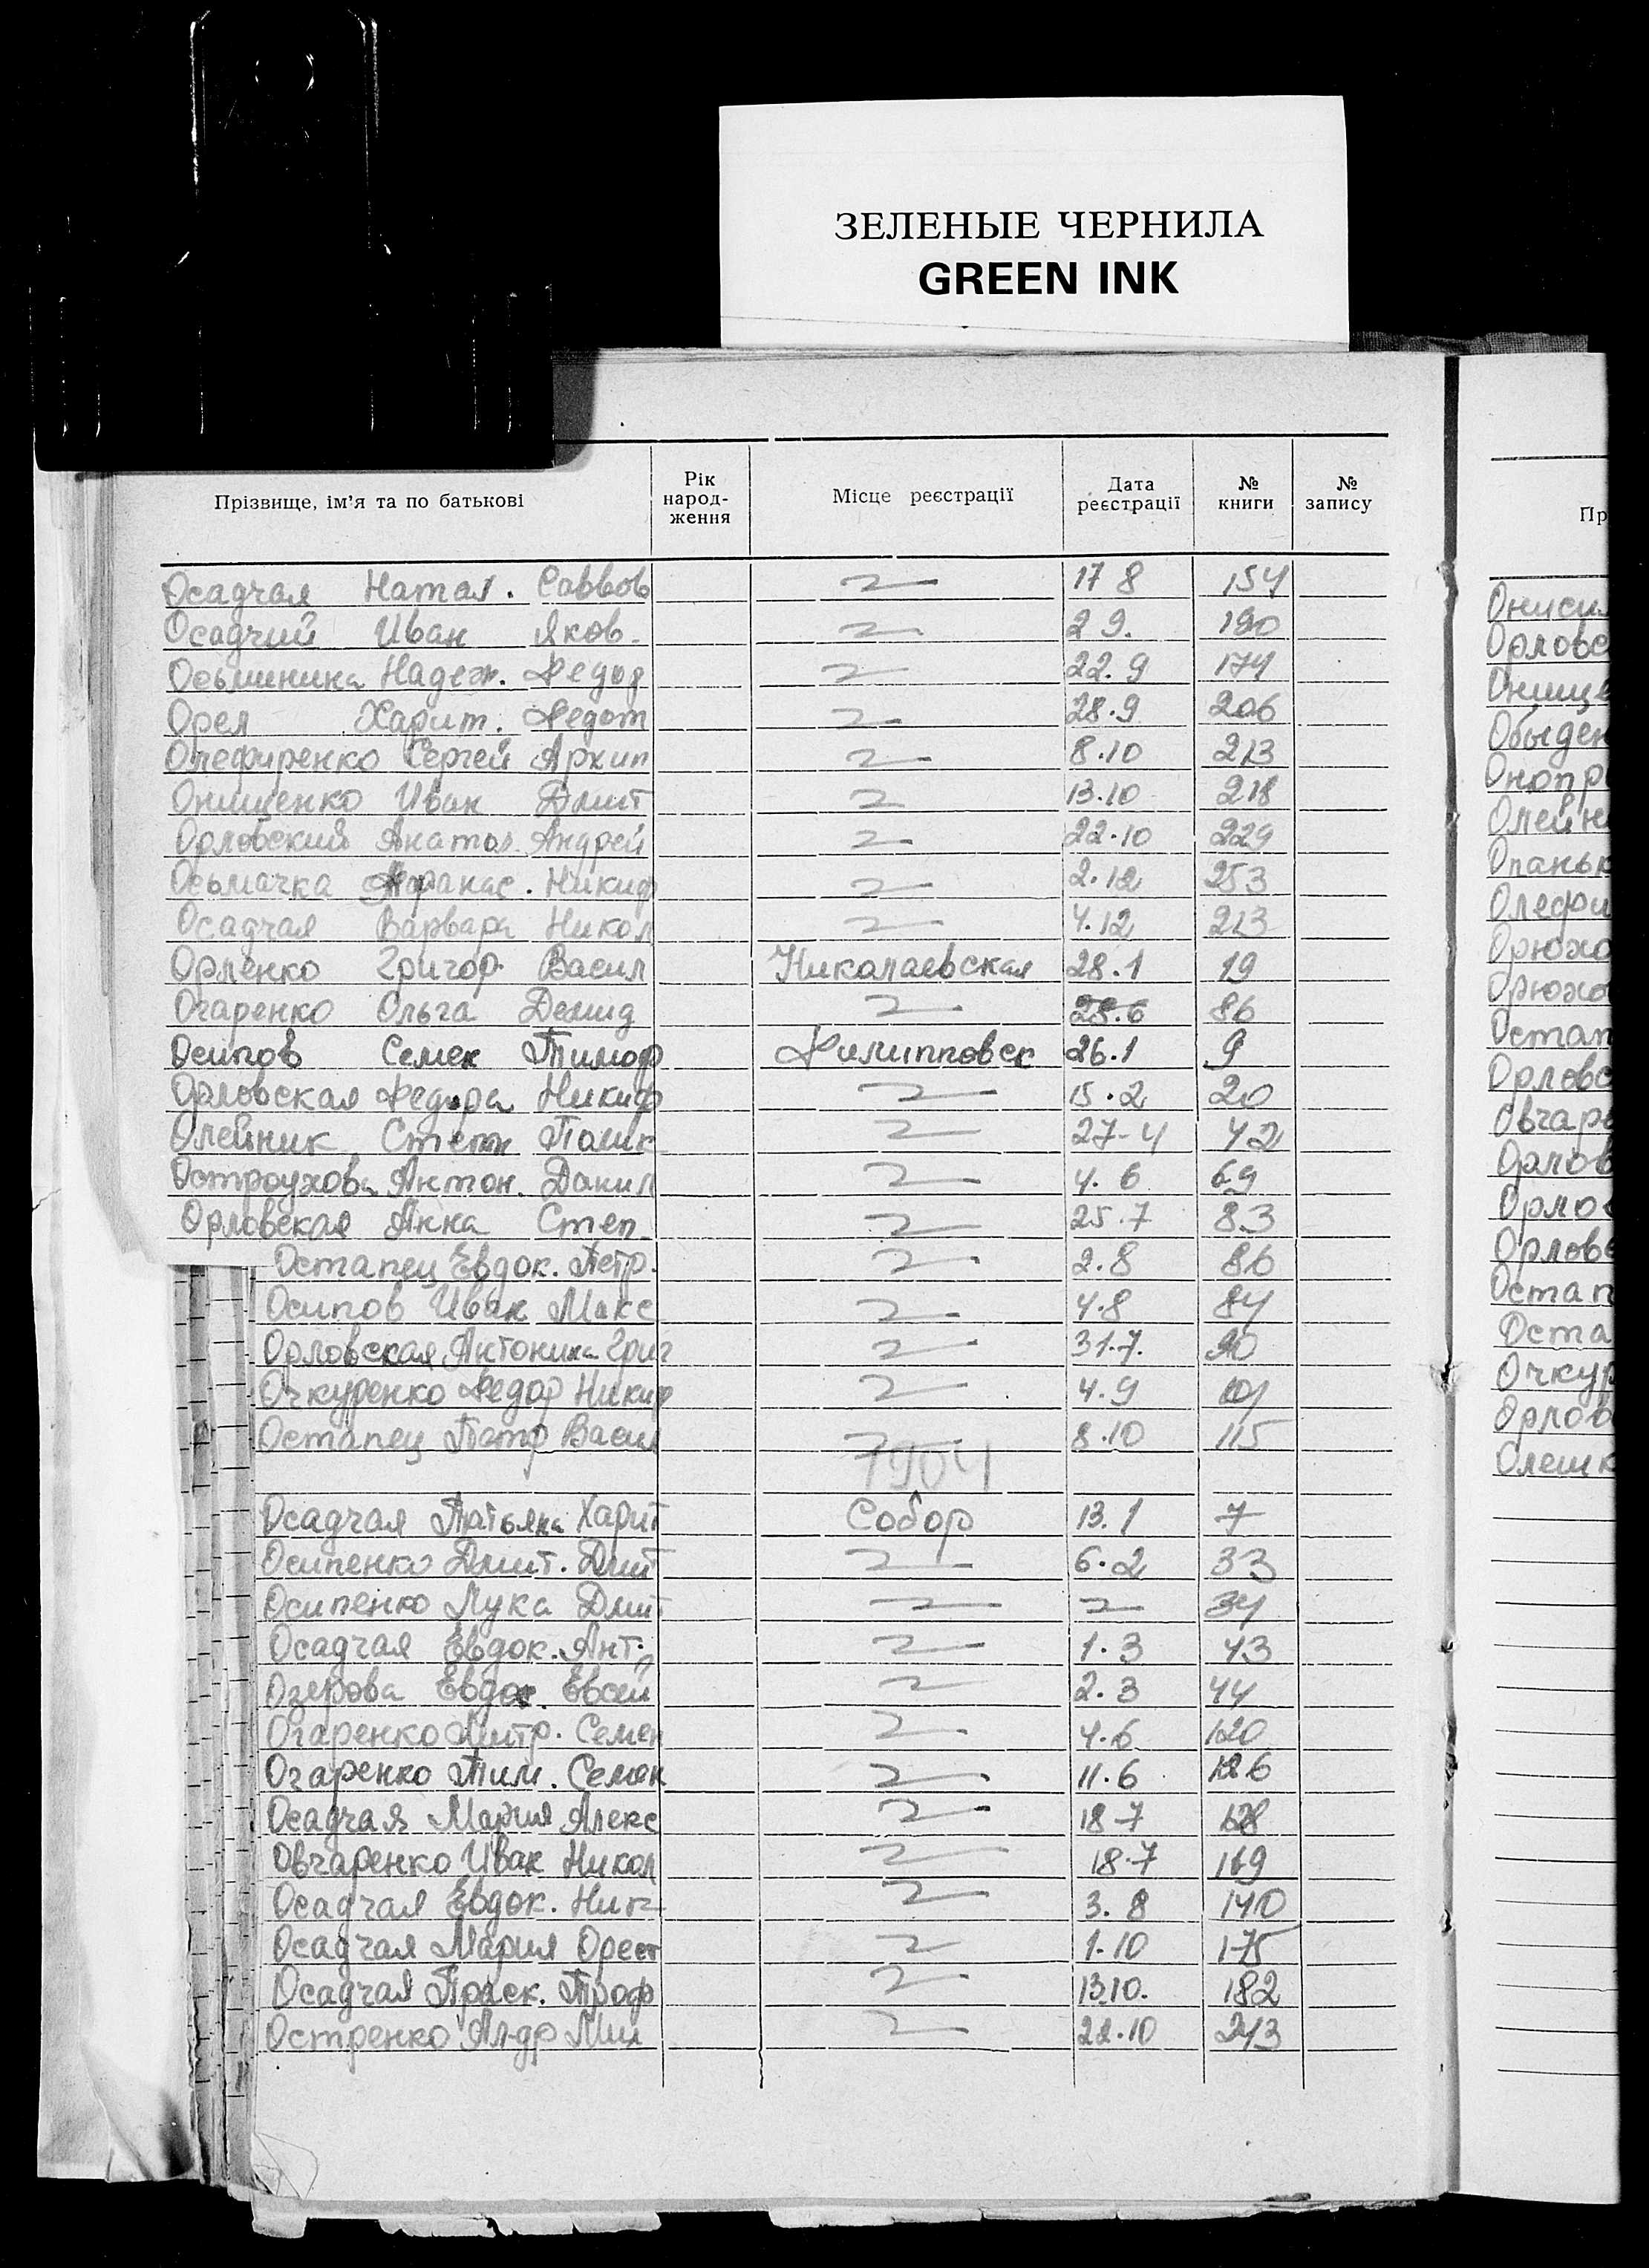 ЗЕЛЕНЫЕ ЧЕРНИЛА
GREEN INK
Прізвище, ім'я та по батькові Рік народ-ження Місце реєстрації Дата реєстрації № книги № запису
Пр
Осадчая Натал. Саввов 17 8 154
Осадчий Иван Яков. 2 9. 190
Осьминина Надеж. Федор 22.9 174
Орел Харит. Федот 28.9 206
Олефиренко Сергей Архип 8.10 213
Онищенко Иван Дмит 13.10 218
Орловский Анатол. Андрей 22.10 229
Осьмачка Афанас. Никиф 2.12 253
Осадчая Варвара Никол 4.12 213
Орленко Григор. Васил Николаевская 28.1 19
Огаренко Ольга Демид 28.6 86
Осипов Семен Тимоф Филипповск 26.1 9
Орловская Федора Никиф 15.2 20
Олейник Степ 27-4 42
Остроухова Антон. Данил 4.6 69
Орловская Анна Степ. 25.7 83
Остапец Евдок. Петр. 2.8 86
Осипов Иван Макс 4.8 84
Орловская Антонина Григ 31.7. 90
Очкуренко Федор Никиф 4.9 101
Остапец Петр Васил 8.10 115
1904
Осадчая Татьяна Харит Собор 13.1 7
Осипенко Дмит. Дмит 6.2 33
Осипенко Лука Дмит 34
Осадчая Евдок. Ант. 1.3 43
Озерова Евдок. Евсей 2.3 44
Огаренко Митр. Семен 4.6 120
Огаренко Тим. Семен 11.6 126
Осадчая Мария Алекс 18-7 128
Овчаренко Иван Никол 18.7 169
Осадчая Евдок. Ник 3.8 140
Осадчая Мария Орест 1.10 175
Осадчая Праск. Троф 13.10. 182
Остренко Ал-др Мих 22.10 243
Ониси
Орловс
Онище
Обыден
Онопр
Олейн
Опаньк
Олефи
Орюхо
Орюхо
Остап
Орловс
Овчар
Орлов
Орлов
Орлов
Остап
Оста
Очкур
Орлов
Олешк